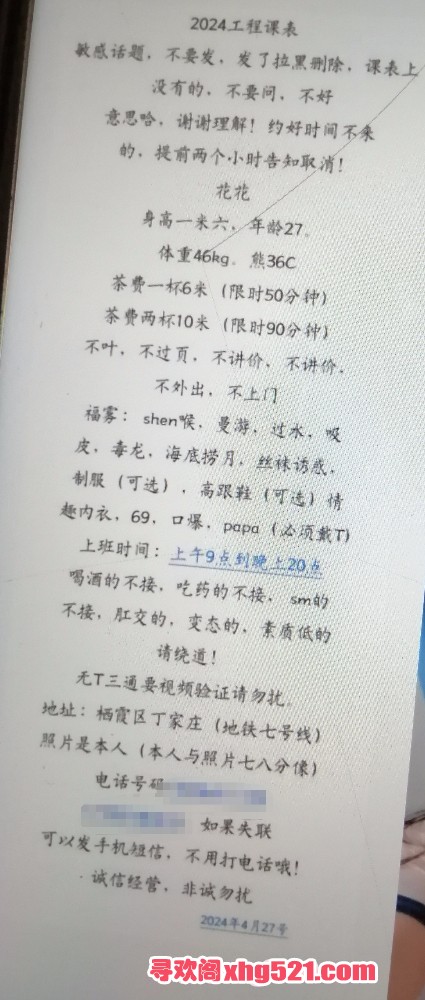 2024工程课表
敏感话题，不要发，发了拉黑删除，课表上
没有的，不要问，不好
意思哈，谢谢理解！约好时间不来
的，提前两个小时告知取消！
花花
身高一米六，年龄27。
体重46kg。熊36C
茶费一杯6米（限时50分钟）
茶费两杯10米（限时90分钟）
不叶，不过页，不讲价，不讲价，
不外出，不上门
福雾：shen喉，曼游，过水，吸
皮，毒龙，海底捞月，丝袜诱惑，
制服（可选），高跟鞋（可选）情
趣内衣，69，口爆，papa（必须戴T）
上班时间：上午9点到晚上20点
喝酒的不接，吃药的不接，sm的
不接，肛交的，变态的，素质低的
请绕道！
无T三通要视频验证请勿扰。
地址：栖霞区丁家庄（地铁七号线）
照片是本人（本人与照片七八分像）
电话号码
如果失联
可以发手机短信，不用打电话哦！
诚信经营，非诚勿扰
2024年4月27号
寻欢阁xhg521.com